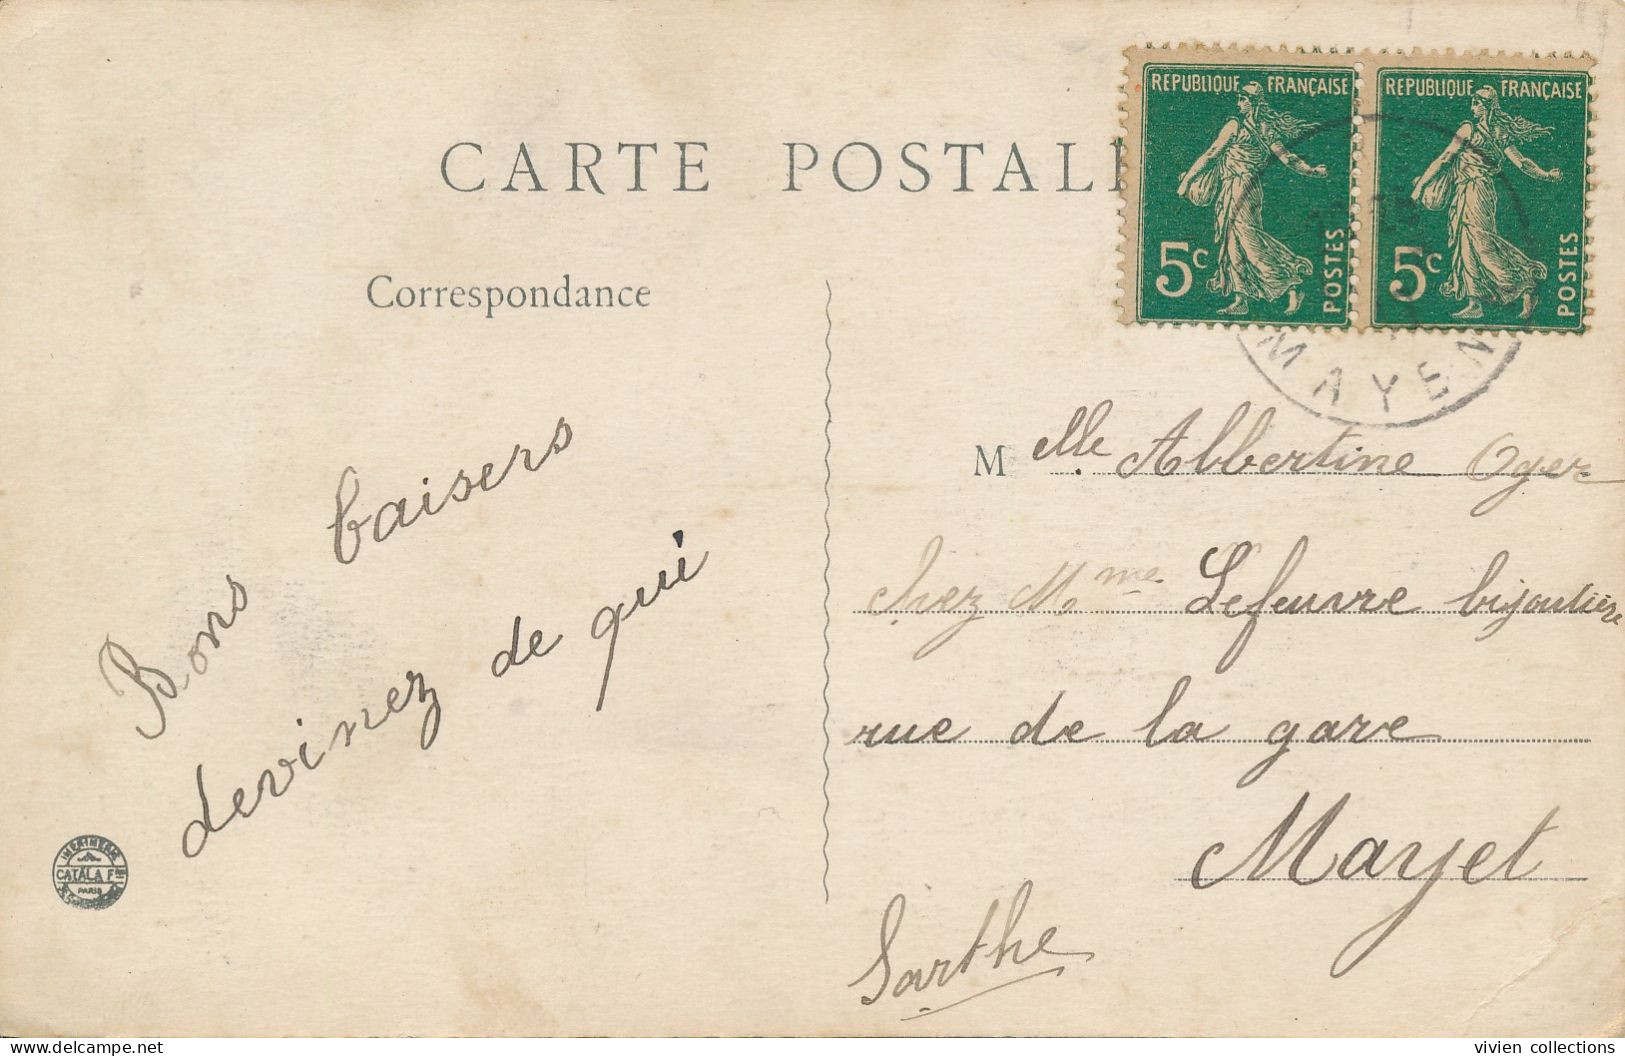 CARTE POSTALE
REPUBLIQUE FRANÇAISE
5c
POSTES
REPUBLIQUE FRANÇAISE
5c
POSTES
MAYEN
Correspondance
Bons baisers
devinez de qui
Melle Albertine Oger
chez Mme Lefeuvre bijoutière
rue de la gare
Mayet
Sarthe
IMPRIMERIE
CATALA F
PARIS
delcampe.net
vivien collections